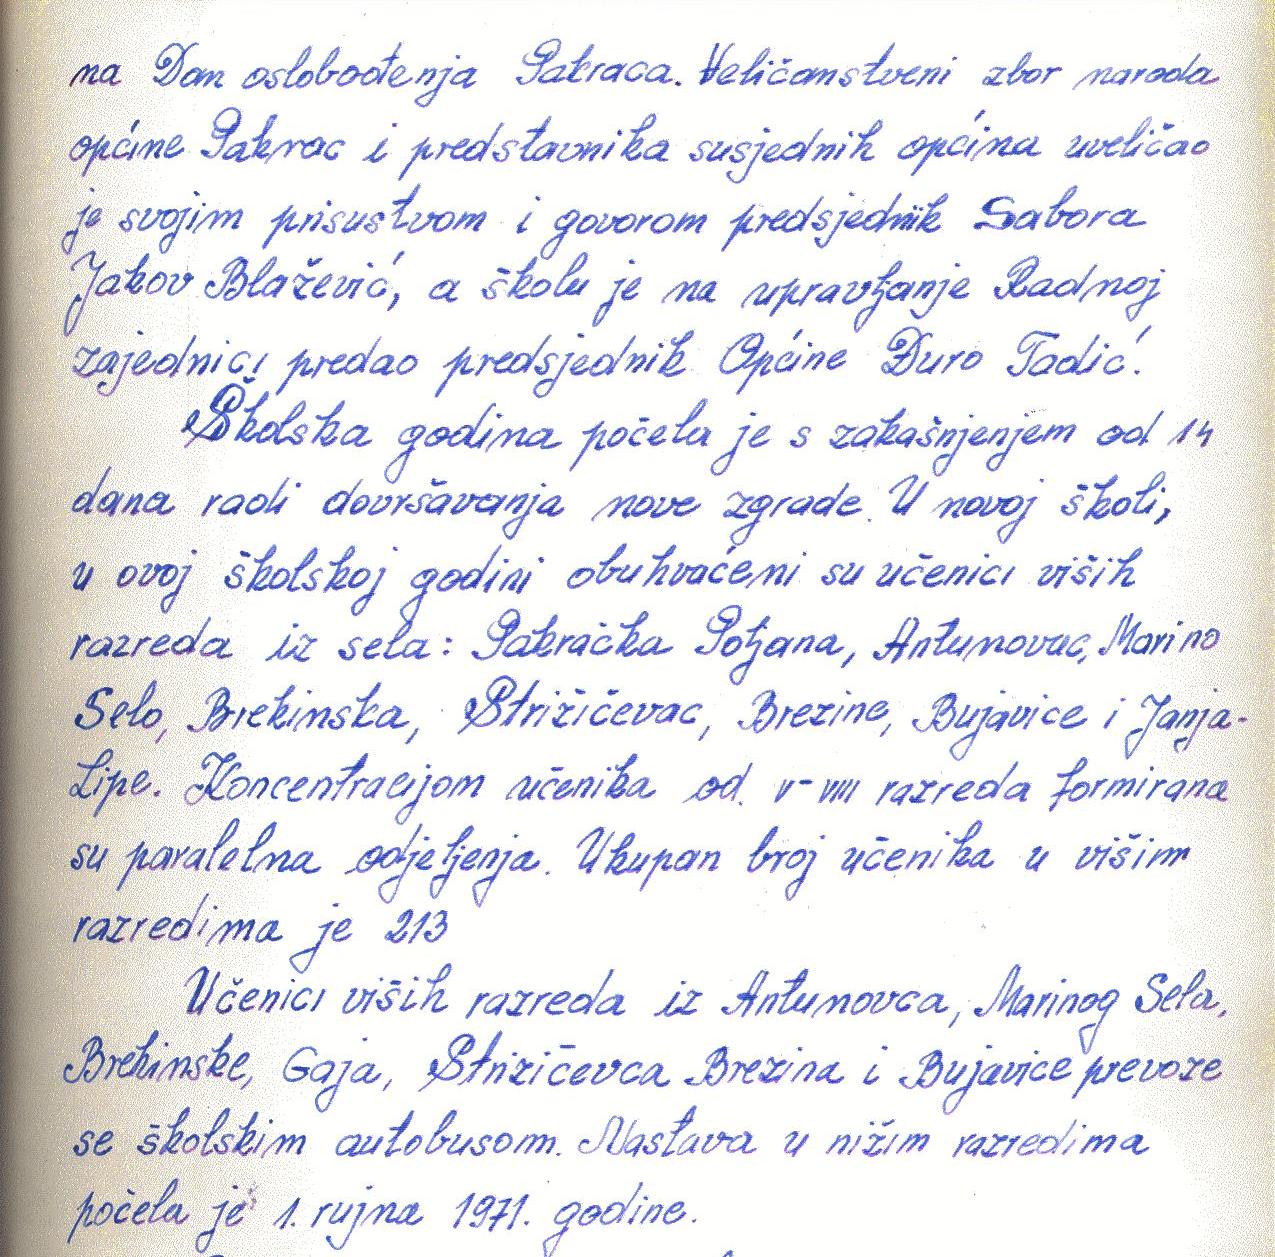 na Dan oslobođenja Pakraca. Veličanstveni zbor naroda
općine Pakrac i predstavnika susjednih općina uveličao
je svojim prisustvom i govorom predsjednik Sabora
Jakov Blažević, a školu je na upravljanje Radnoj
zajednici predao predsjednik Općine Đuro Tadić.
Školska godina počela je s zakašnjenjem od 14
dana radi dovršavanja nove zgrade. U novoj školi,
u ovoj školskoj godini obuhvaćeni su učenici viših
razreda iz sela: Pakračka Poljana, Antunovac, Marino
Selo, Brekinska, Strižičevac, Brezine, Bujavice i Janja-
Lipe. Koncentracijom učenika od V-VIII razreda formirana
su paralelna odjeljenja. Ukupan broj učenika u višim
razredima je 213
Učenici viših razreda iz Antunovca, Marinog Sela,
Brekinske, Gaja, Strižičevca Brezina i Bujavice prevoze
se školskim autobusom. Nastava u nižim razredima
počela je 1. rujna 1971. godine.